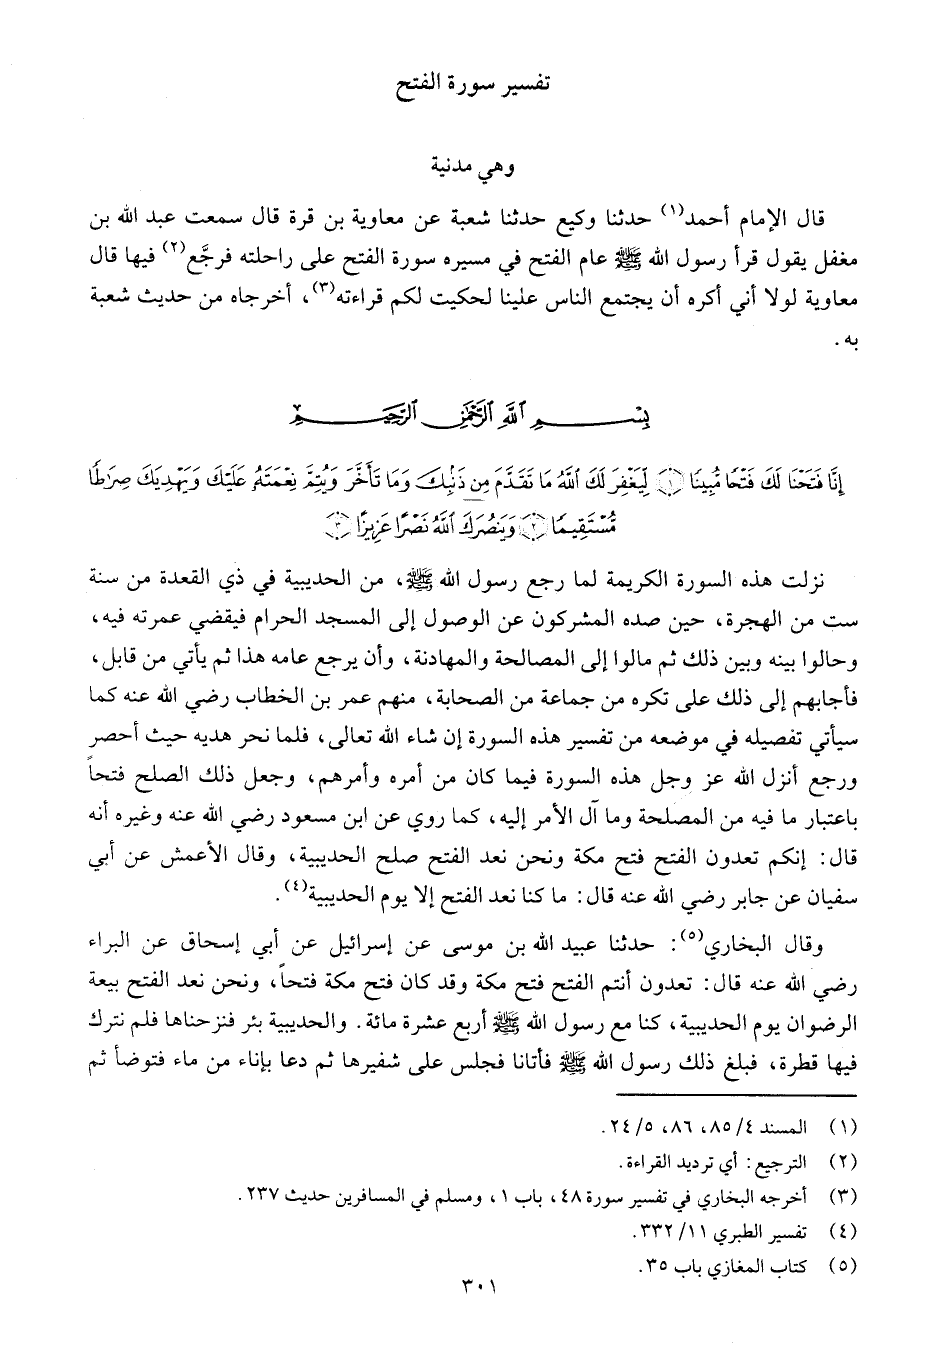 تفسير سورة الفتح
وهي مدنية
قال الإمام أحمد(١) حدثنا وكيع حدثنا شعبة عن معاوية بن قرة قال سمعت عبد الله بن
مغفل يقول قرأ رسول الله ﷺ عام الفتح في مسيره سورة الفتح على راحلته فرجَّع(٢) فيها قال
معاوية لولا أني أكره أن يجتمع الناس علينا لحكيت لكم قراءته(٣)، أخرجاه من حديث شعبة
به.
بِسْمِ ٱللَّهِ ٱلرَّحْمَٰنِ ٱلرَّحِيمِ
إِنَّا فَتَحْنَا لَكَ فَتْحًا مُّبِينًا ﴿١﴾ لِّيَغْفِرَ لَكَ ٱللَّهُ مَا تَقَدَّمَ مِن ذَنۢبِكَ وَمَا تَأَخَّرَ وَيُتِمَّ نِعْمَتَهُۥ عَلَيْكَ وَيَهْدِيَكَ صِرَٰطًا
مُّسْتَقِيمًا ﴿٢﴾ وَيَنصُرَكَ ٱللَّهُ نَصْرًا عَزِيزًا ﴿٣﴾
نزلت هذه السورة الكريمة لما رجع رسول الله ﷺ، من الحديبية في ذي القعدة من سنة
ست من الهجرة، حين صده المشركون عن الوصول إلى المسجد الحرام فيقضي عمرته فيه،
وحالوا بينه وبين ذلك ثم مالوا إلى المصالحة والمهادنة، وأن يرجع عامه هذا ثم يأتي من قابل،
فأجابهم إلى ذلك على تكره من جماعة من الصحابة، منهم عمر بن الخطاب رضي الله عنه كما
سيأتي تفصيله في موضعه من تفسير هذه السورة إن شاء الله تعالى، فلما نحر هديه حيث أحصر
ورجع أنزل الله عز وجل هذه السورة فيما كان من أمره وأمرهم، وجعل ذلك الصلح فتحاً
باعتبار ما فيه من المصلحة وما آل الأمر إليه، كما روي عن ابن مسعود رضي الله عنه وغيره أنه
قال: إنكم تعدون الفتح فتح مكة ونحن نعد الفتح صلح الحديبية، وقال الأعمش عن أبي
سفيان عن جابر رضي الله عنه قال: ما كنا نعد الفتح إلا يوم الحديبية(٤).
وقال البخاري(٥): حدثنا عبيد الله بن موسى عن إسرائيل عن أبي إسحاق عن البراء
رضي الله عنه قال: تعدون أنتم الفتح فتح مكة وقد كان فتح مكة فتحاً، ونحن نعد الفتح بيعة
الرضوان يوم الحديبية، كنا مع رسول الله ﷺ أربع عشرة مائة. والحديبية بئر فنزحناها فلم نترك
فيها قطرة، فبلغ ذلك رسول الله ﷺ فأتانا فجلس على شفيرها ثم دعا بإناء من ماء فتوضأ ثم
(١) المسند ٤/ ٨٥، ٨٦، ٥/ ٢٤.
(٢) الترجيع: أي ترديد القراءة.
(٣) أخرجه البخاري في تفسير سورة ٤٨، باب ١، ومسلم في المسافرين حديث ٢٣٧.
(٤) تفسير الطبري ١١/ ٣٣٢.
(٥) كتاب المغازي باب ٣٥.
٣٠١